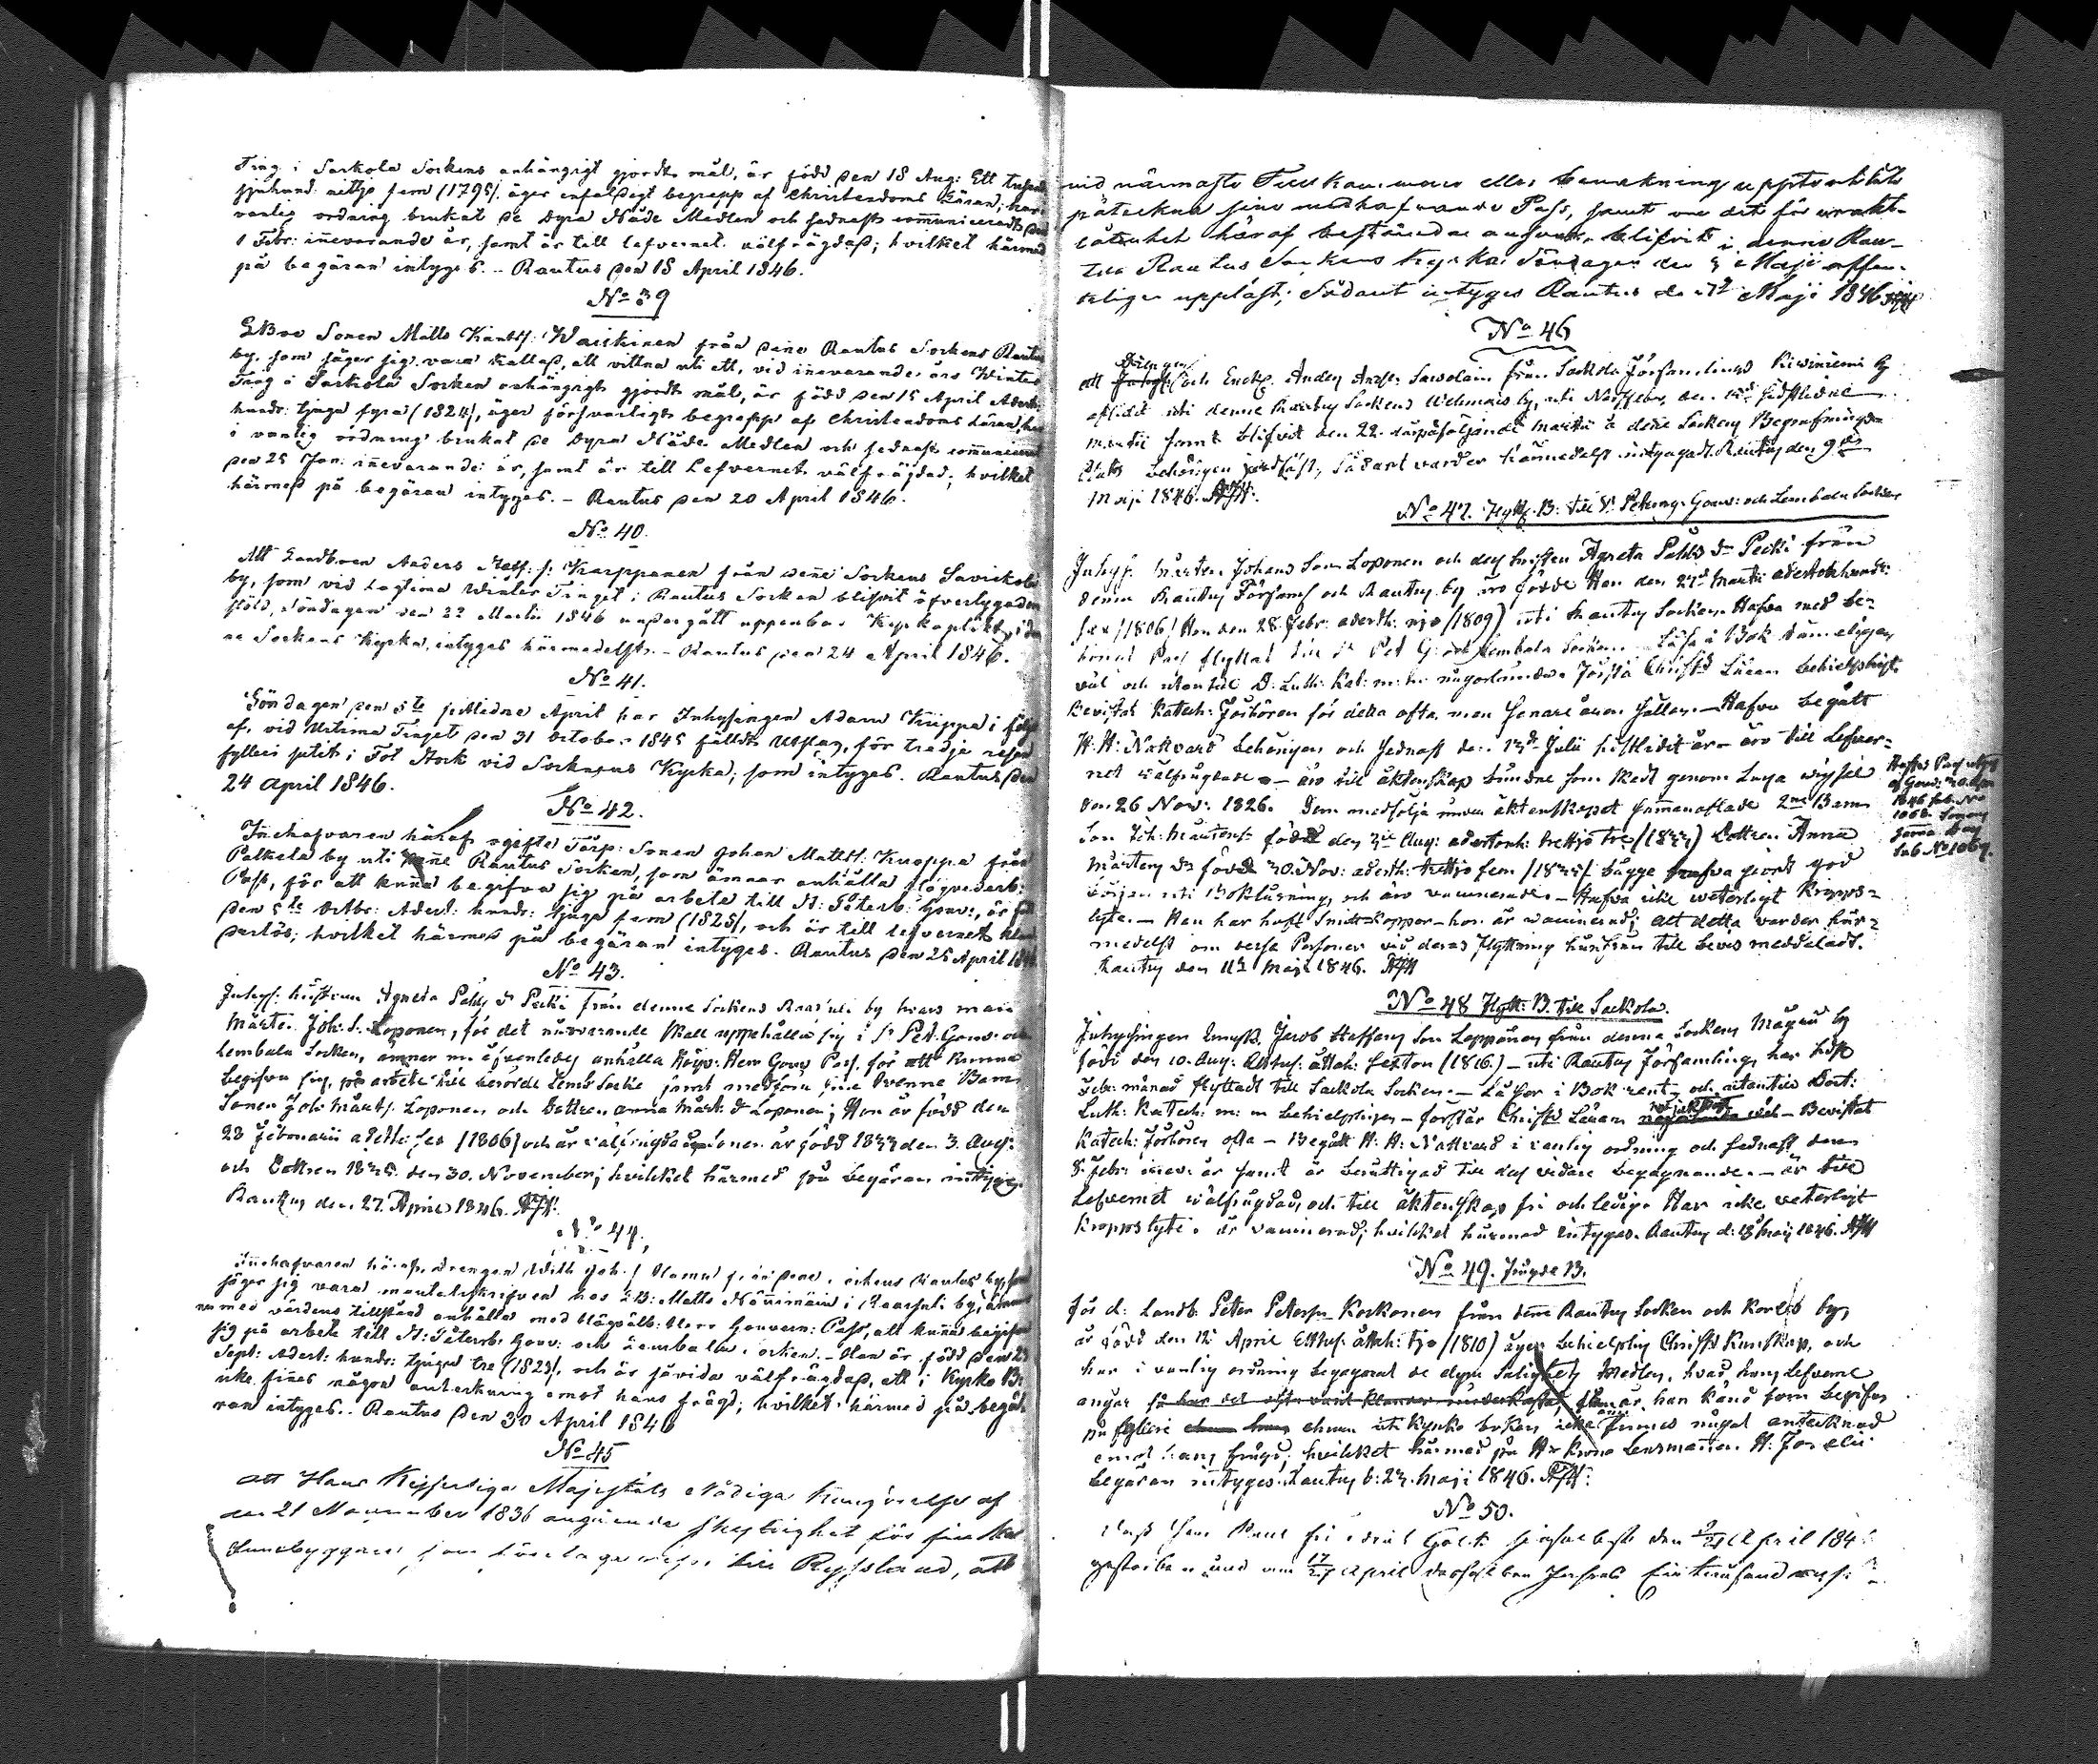 Ting i Sackola Sockens anhängigt gjordt mål, är född den 18 Aug: Ett tusende
sjuhund: nittjo fem (1795), äger enfaldigt begrepp af Christendoms Läran; har i
vanlig ordning brukat de dyra Nåde Medlen och sednast communicerade den
1 Febr: innevarande år, samt är till lefvernet välfrägdad; hvilket härmed
på begäran intygas. - Rautus den 18 April 1846.
No 39
Sonen Matts Waiskinen från denne Rautus Sockens Rautus
by, som säger sig vara kallad, att vittna uti ett, vid innevarande års Winter
Ting i Sackola Socken anhängigt gjordt mål, är född den 15 April Adert:
hundr: tjugu fyra (1824), äger försvarligt begrepp af Christendoms Läran, har
i vanlig ordning brukat de dyra Nåde Medlen och sednast communicerat
den 25 Jan: innevarande år, samt är till Lefvernet välfräjdad; hvilket
härmed på begäran intygas. - Rautus den 20 April 1846.
No 40.
Att Landboen Anders Karppanen från denne Sockens Savikola
by, som vid Lagtima Winter Tinget i Rautus Socken blifvit öfvertygad om
stöld, Söndagen den 22 Martii 1846 undergått uppenbar Kyrkoplikt i den-
ne Sockens Kyrka, intygas härmedelst. - Rautus den 24 April 1846.
No 41.
Söndagen den 5te sistlidne April har Inhysingen Adam Kuppa i följd
af, vid Urtima Tinget den 31 October 1845 fälldt Utslag, för tredje resan
fylleri sutit i Fot Stock vid Sockenens Kyrka; som intygas. Rautus den
24 April 1846.
No 42.
Innehafvaren häraf ogifte Torp: Sonen Johan Matts: Kuoppa från
Palkeala by uti denne Rautus Socken, som ämnar anhålla Högvederb:
Pass, för att kunna begifva sig på arbete till St: Peterb: Gouv:, är född
den 5te Octbr: Adert: hundr: tjugo fem (1825), och är till lefvernet klan-
derlös; hvilket härmed på begäran intygas. Rautus den 25 April 1846
No 43.
Inhys: hustrun Agneta Påhls dr Pecki från denne Sockens by hvars man
Mårten Joh: S. Loponen, för det närvarande skall uppehålla sig i St Pet. Gouv: och
Lembala Socken, ämnar nu äfvenledes anhålla Höges: Herr Gouv Pass, för att kunna
begifva sig, på arbete till berörde Lemb: Socken samt medföra sine tvenne Barn
Sonen Joh: Mårts: Loponen och Dottren Anna Mårt: dr Loponen; Hon är född den
28 Februarii aderth: sex (1806) och är välfrägdad Sonen är född 1833 den 3. Aug:
och Dottren 1835. den 30. November; hvilket härmed på begäran intygas.
Rautus den 27. April 1846.
No 44.
Innehafvaren häraf, drengen Joh: från denne Sockens Rautus by, som
säger sig vara mantalsskrifven hos Matts Nännimäin i by, ämnar
nu med värdens tillstånd anhålla med Högvälb: Herr Gouvern: Pass, att kunna begifva
sig på arbete till St: Peterb: Gouv: och Lembala socken. - Han är född den 23
Sept: Adert: hundr: tjugu tre (1823), och är såvida välfrägdad, att i Kyrko B:
icke finnes någon anteckning emot hans frägd; hvilket härmed på begä-
ran intygas. Rautus den 30 April 1846
No 45
Att Hans Kejserliga Majestäts Nådiga Kungörelse af
den 21 November 1836 angående skyldighet för finske
Innebyggare, som företaga resor till Ryssland, att
vid närmaste Tullkammare eller bevakning upptedt låta
påteckna sine medhafvande Pass, samt om det för urakt-
låtenhet häraf bestämda answar, blifvit i denne Rau-
tus Sockens Kyrka Söndagen den 3 Maji offen-
teligen uppläst; Sådant intyges Rautus den 7 Maji 1846
No 46
Drängen
att och Enckl. Anders Anders: Sawolain från Sackola Församlings Kiwiniemi by
aflidit uti denne Rautus Sockens by, uti den sistledne
Martii samt blifvit den 22. därpåföljande Martii å dess Sockens Begrafnings
Plats behörigen jordfäst, sådant varder härmedelst intygadt. Rautus den 9de
Maji 1846.
No 47. Flyttn. B: till St. Petersg. Gouv: och Lembala Socken
Inhys: Mårten Johans Son Loponen och dess hustru Agneta Påhls dr Pecki från
denne Rautus Församl och Rautus by äro födde Han den 27d Martii adertonhundr:
sex (1806) Hon den 28 Febr: aderth: nijo (1809) uti Rautus Socken. Hafva med be-
kommet Pass flyttat till St Pet G: och Lembala Socken. Läsa i Bok
väl och utantill D. Luth: Kat: m: m: någorlunda. Förstå Christd: Läran behielpligt.
Bevistat Katech: Förhören för detta ofta, men senare åren sällan. - Hafva begått
H: H: Nattvard behörigen och sednast den 13d Julii sistlidit år - äro till Lefver-
net välfrägdade - äro till äktenskap bundne som skedt genom Laga wigsel
den 26 Nov: 1826. Dem medfölja under äktenskapet sammanaflade 2ne Barn
Son Joh: Mårtens: född den 3die Aug: adertonh: trettjo tre (1833) Dottren Anna
Mårtens dr född 30. Nov: aderth: trettjo fem (1835) bägge hafva gjordt god
början uti Bokläsning, och äro vaccinerade. - Hafva icke veterligt kropps-
lyte. - Han har haft Smittkoppor - hon är vaccinerad; Att detta varder här-
medelst om desse Personer vid deras flyttning härifrån till bevis meddeladt.
Rautus den 11te Maji 1846.
Hafva Pass utaf
af Gouv: 30 Apr
1846 sub. No
1068. Sonen
Sub No 1069.
No 48 Flytt: B. till Sackola.
Inhysingen Jacob Staffans Son Loppönen från denna Sockens by
född den 10. Aug: Ettus: åttah: Sexton (1816) - uti Rautus Församling, har sist
Febr: månad flyttadt till Sackola Socken - Läser i Bok rent och utantill Doct:
Luth: Katech: m: m behielpligen - förstår Christd Läran - Bevistat
Katech: förhören ofta - Begått H: H: Nattvard i vanlig ordning och sednast den
8. Febr: innev: år samt är berättigad till dess vidare begagnande. - är till
Lefvernet välfrägdad, och till äktenskap fri och ledig. Har icke veterligt
kroppslyte. är vaccinerad; hvilket härmed intygas. Rautus d: 18 Maij 1846.
No 49. Frägde B.
För d: Landb: Peter Peters: Korkonen från denne Rautus Socken och by,
är född den 12 April Ettus: åttah: tjo (1810) äger behielplig Christd Kunskap, och
har i vanlig ordning begagnat de dyra Salighets Medlen, hvad hans Lefverne
angår så har det ofta varit klander underkastat, han är känd som begifven
på fylleri ehuru uti kyrko boken icke finnes något antecknad
emot hans frägd; hvilket härmed på Hr Krono Lensmannen H:
begäran intygas. Rautus d: 23. Maji 1846.
No 50.
April 184
gestorben und am 17/29 April desselben Jahres Eintausend